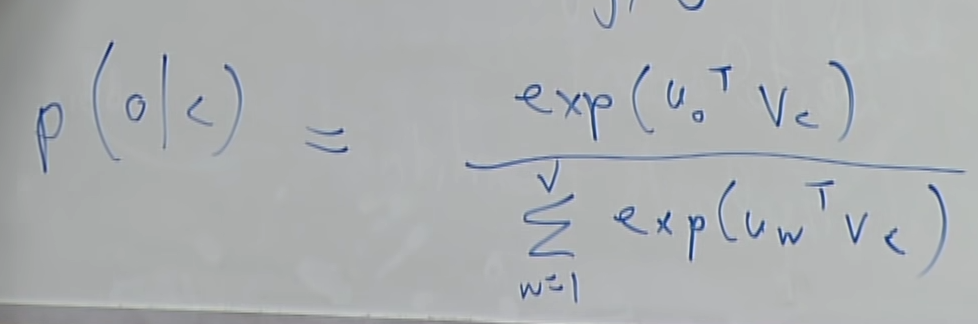 p(o|c) = exp(u_o^T v_c) / ∑_{w=1}^{V} exp(u_w^T v_c)